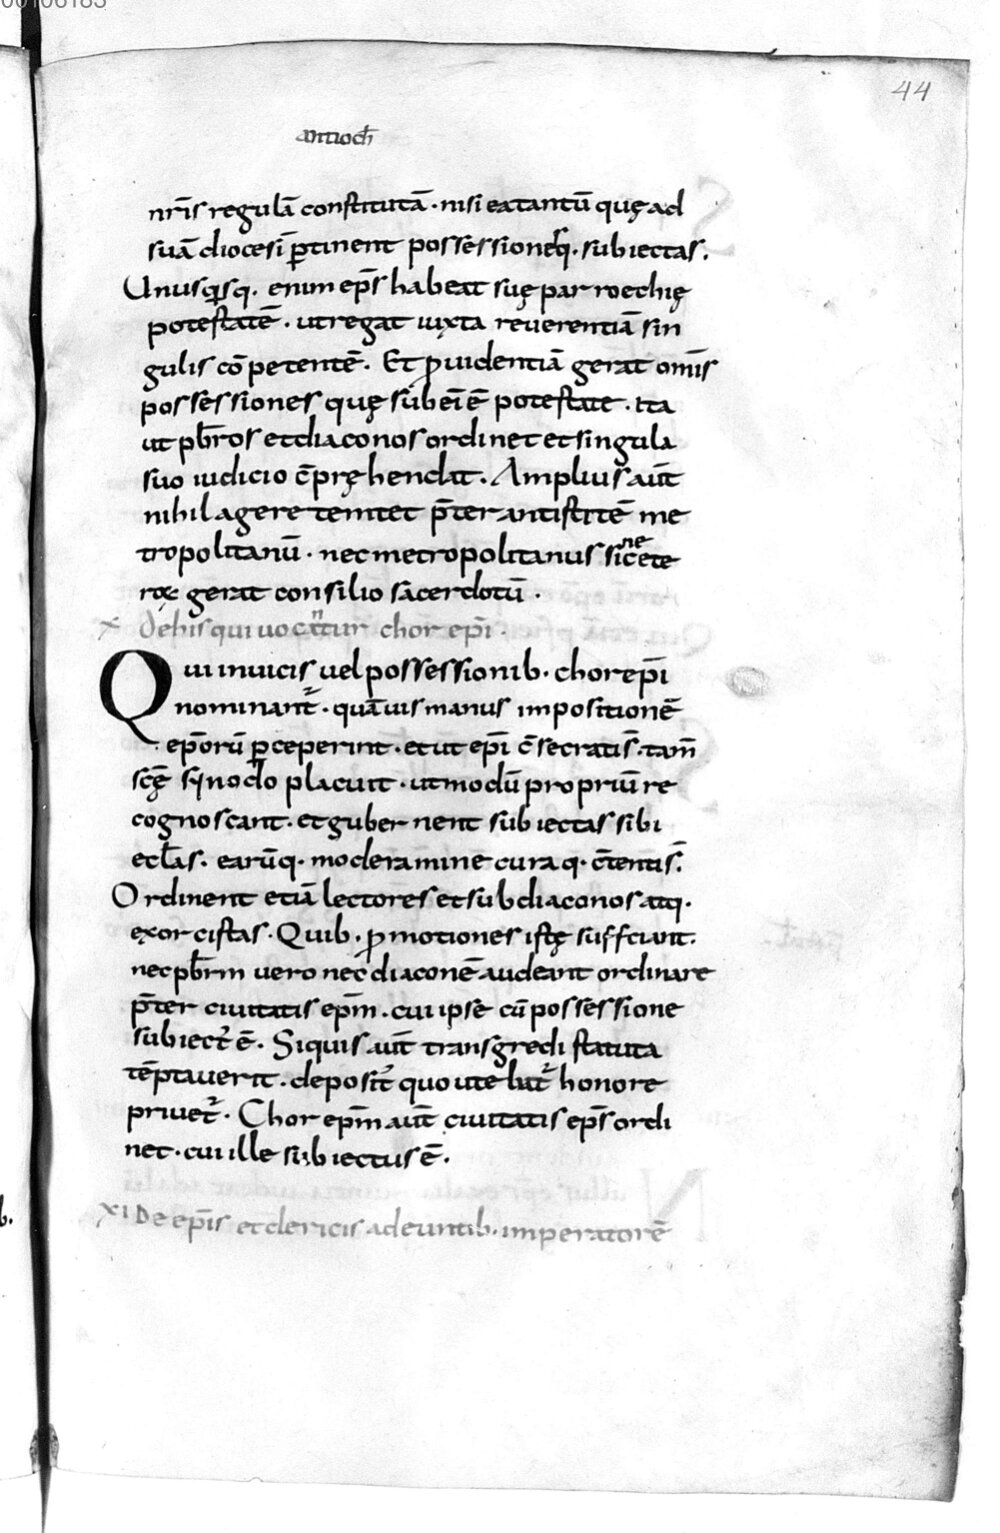 00106183
44
antioch̄
nr̄is regulā constitutā · nisi ea tantū quę ad
suā diocesī ꝑtinent possessionesq́ · subiectas.
Unusqⁱsq · enim ep̄s habeat suę parroechię
potestatē · ut regat iuxta reuerentiā sin
gulis cōpetentē. Et ꝓuidentiā gerat om̄is
possessiones quę sub eī ē potestate · ita
ut pb̄ros et diaconos ordinet et singula
suo iudicio c̄pręhendat. Amplius aūt
nihil agere temtet p̄ter antistitē me
tropolitanū · nec metropolitanus sine cete
roꝝ gerat consilio sacerdotū ·
X De his qui uocant̄ur chorepī ·
Qui in uicis uel possessionib · chorepī
nominant᷑ · quāuis manus impositionē
ep̄orū ꝑceperint · et ut epī c̄secrati s̄ · tam̄
scę̄ synodo placuit · ut modū propriū re
cognoscant · et gubernent subiectas sibi
eccl̄as · earūq · moderamine cura q · c̄tenti s̄.
Ordinent etiā lectores et subdiaconos atq ·
exorcistas · Quib · ꝓmotiones istę sufficiant.
nec pb̄rm uero nec diaconē audeant ordinare
p̄ter ciuitatis ep̄m · cui ipse cū possessione
subiect᷑ ē. Siquis aūt transgredi statuta
tēptauerit · deposit᷑ quo utebat᷑ honore
priuet᷑ · Chorep̄m aūt ciuitatis ep̄s ordi
net · cui ille subiectus ē ·
XI De ep̄is et clericis adeuntib · imperatorē
b.